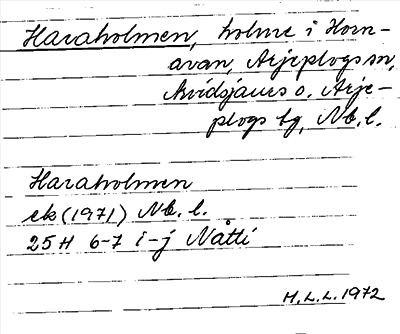 Haraholmen, holme i Horn-
avan, Arjeplogs sn,
Arvidsjaurs o. Arje-
plogs tg, Nb. l.
Haraholmen
ek (1971) Nb. l.
25 H 6-7 i-j Nåtti
H.L.L. 1972